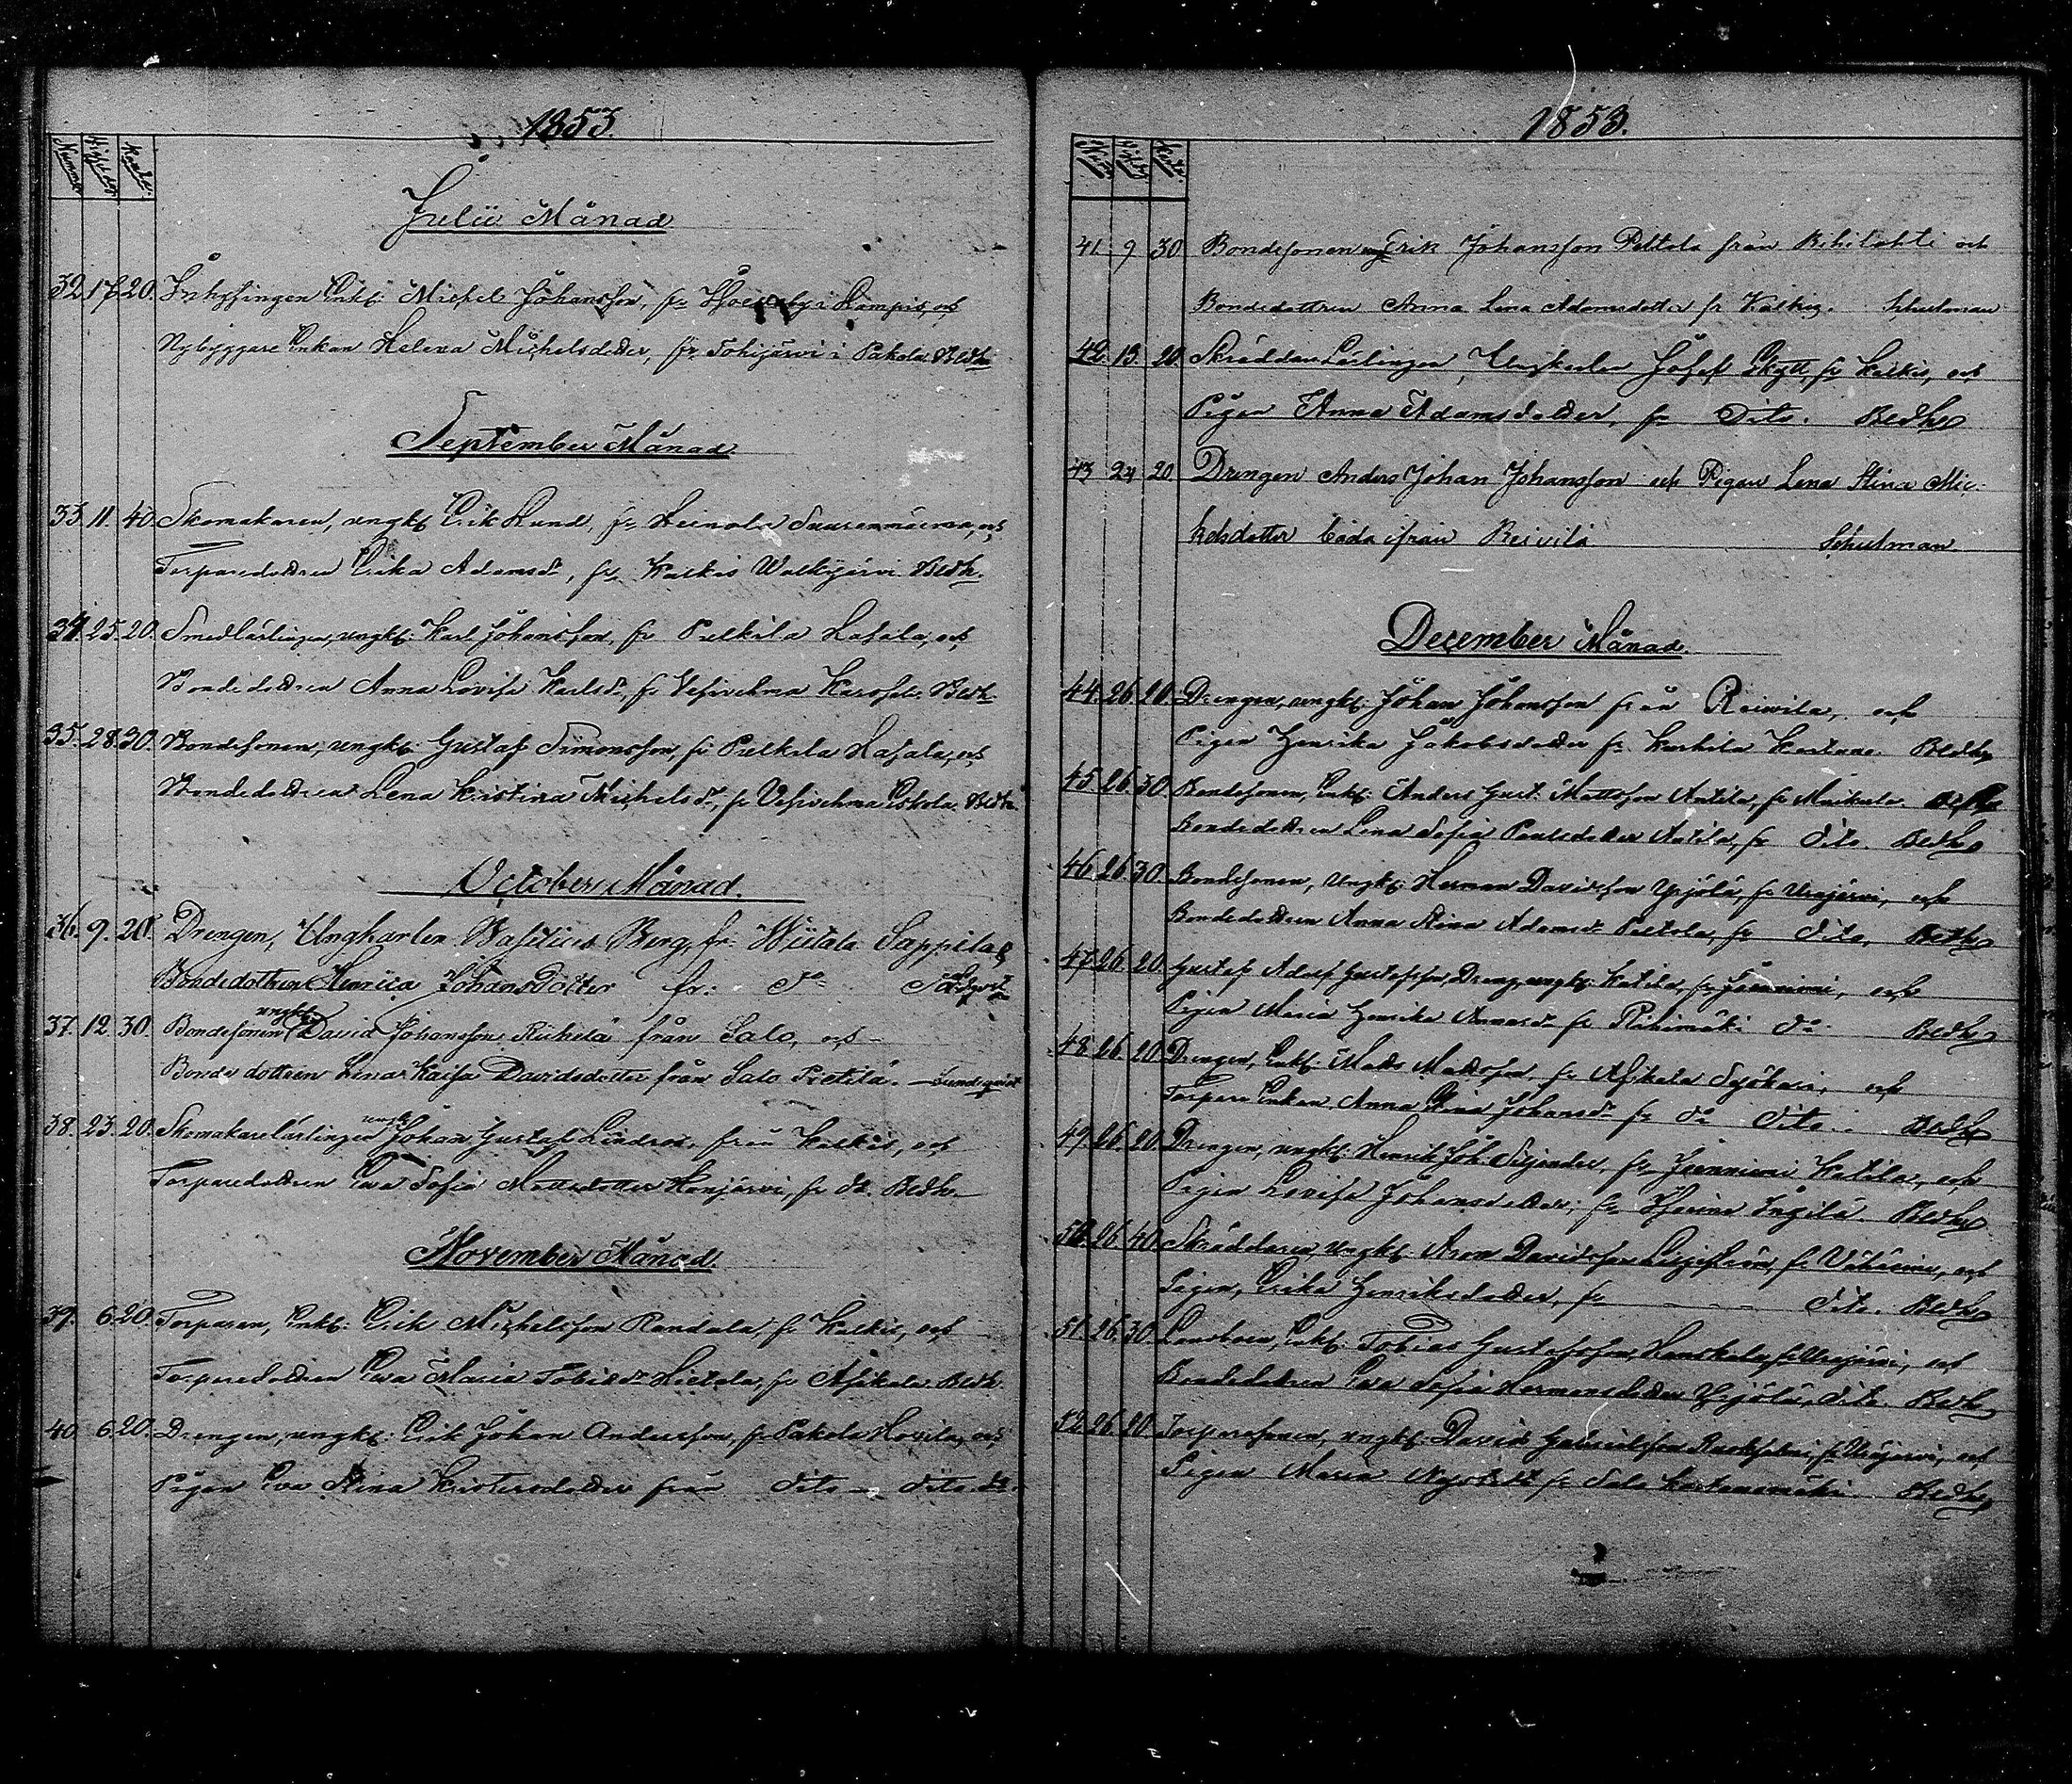 1853.
Nummer Vigsel dag Kollekt.
Julii Månad
32. 17. 20. Inhysingen Enkl: Michel Johansson, fr Hämpis, och
Nybyggare Enkan Helena Michelsdotter, fr. i Pakola Bedh.
September Månad
33. 11. 40. Skomakaren, ungk: Erik Lund, fr Heinola och
Torparedottren Erika Adamsdr, fr Kalkis Walkjärvi Bedh.
34. 25. 20. Smedlärlingen, ungk: Karl Johansson, fr Pulkila Hasala, och
Bondedottren Anna Lovisa Karlsdr, fr Vesivehma Bedh.
35. 28. 30. Bondesonen, ungk: Gustaf Simonsson, fr Pulkila Hasala, och
Bondedottren Lena Kristina Michelsdr, fr Vesivehma Eskola Bedh.
October Månad.
36. 9. 20. Drengen, Ungkarlen Basilius Berg, fr: Wiitala Sappila &
Bondedottren Henrica Johansdotter fr: Do
ungk:
37. 12. 30. Bondesonen David Johansson Riihelä från Salo, och
Bonde dottren Lena Kaisa Davidsdotter från Salo Pietilä. Lundqvist
ungk:
38. 23. 20. Skomakarelärlingen Johan Gustaf Lindros från Kalkis, och
Torparedottren Eva Sofia Mattsdotter fr do. Bedh.
November Månad.
39. 6. 20. Torparen, Enkl: Erik Michelsson Randala, fr Kalkis, och
Torparedottren Eva Maria Tobiasdr Hietala, fr Asikala Bedh.
40. 6. 20. Drengen, ungk: Erik Johan Andersson, fr Pakola Hovila, och
Pigan Eva Stina Kristersdotter från Dito Dito
1853.
41. 9 30 Bondesonen ung Erik Johansson Peltola från och
Bondedottren Anna Lena Adamsdotter fr Kalkis. Schulman
42. 13. 20. Skräddare Lärlingen, Ungkarlen Josef Skytt, fr Kalkis, och
Pigan Anna Adamsdotter, fr Dito. Bedh
43 24 20 Drengen Anders Johan Johansson och Pigan Lena Stina Mic-
kelsdotter båda ifrån Reivilä Schulman
December Månad
44. 26. 20. Drengen, ungk: Johan Johansson från Reivila, och
Pigan Henrika Jakobsdotter fr. Kurhila Bedh
45. 26. 30 Bondesonen, Enkl: Anders Gust. Mattsson Antila, fr
Bondedottren Lena Sofia Paulsdotter Antila, fr Dito. Bedh
46. 26. 30 Bondesonen, Ungk: Herman Davidsson Yrjölä, fr Urajärvi, och
Bondedottren Anna Stina Adamsdr Pietola, fr Dito. Bedh
47. 26. 20 Gustaf Adolf Gustafsson, Dreng, ungk: Katila, fr och
Pigan Maria Henrika fr Riihimäki Do Bedh
48. 26. 20. Drengen, Enkl: Matts Mattsson, fr Asikala och
Torpare Enkan Anna Stina Johansdr fr do Dito. Bedh
49. 26. 20. Drengen, ungk: Henrik Joh. Siljander, fr Katila, och
Pigan Lovisa Johansdotter, fr Ingilä. Bedh
50. 26. 40. Skräddaren, ungk: Aron Davidsson fr och
Pigan, Erika Henriksdotter, fr Dito. Bedh
51. 26. 30. Enkl: Tobias Gustafsson Hanskala, fr Urajärvi, och
Bondedottren Eva Sofia Hermansdotter Yrjölä, Dito. Bedh
52. 26. 20 Torparesonen, ungk: David Gabrielsson fr Urajärvi, och
Pigan Maria fr Salo Bedh